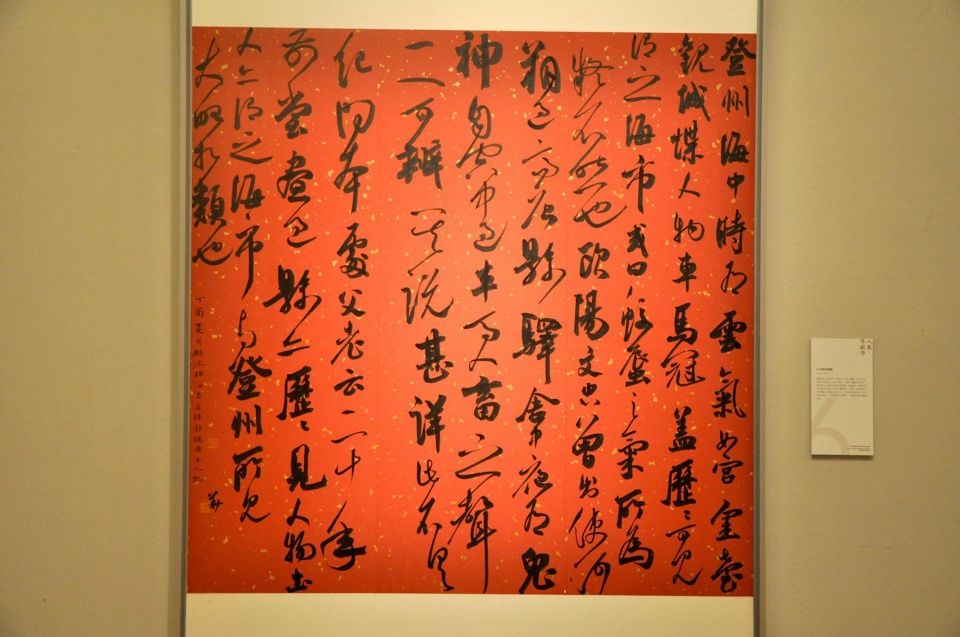 登州海中時有雲氣如宮室臺
觀城堞人物車馬冠蓋歷〻可見
謂之海市或曰蛟蜃之氣所為
疑不然也歐陽文忠曾出使河
朔過高唐縣驛舍中夜有鬼
神自空中過車馬人畜之聲
一一可辨其說甚詳此不具
紀問本處父老云二十年
前嘗晝過縣亦歷〻見人物土
人亦謂之海市與登州所見
大略相類也
丁酉夏月